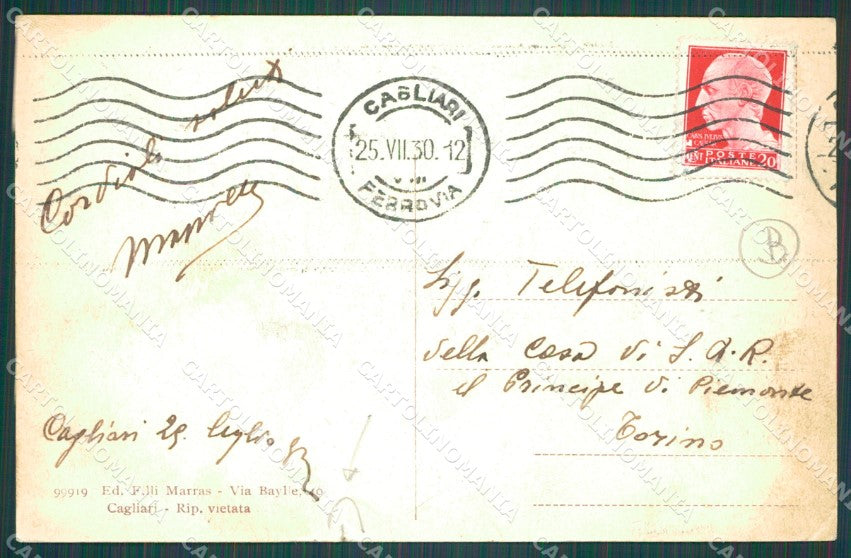 CAGLIARI
25.VII.30.12
VIII
FERROVIA
POSTE
ITALIANE
CENT 20
B
Cordiali saluti
Sigg. Telefonisti
della Casa di S.A.R.
il Principe di Piemonte
Torino
Cagliari 25 luglio
99919 Ed. F.lli Marras - Via Bayl'e, 10
Cagliari - Rip. vietata
CARTOLINOMANIA